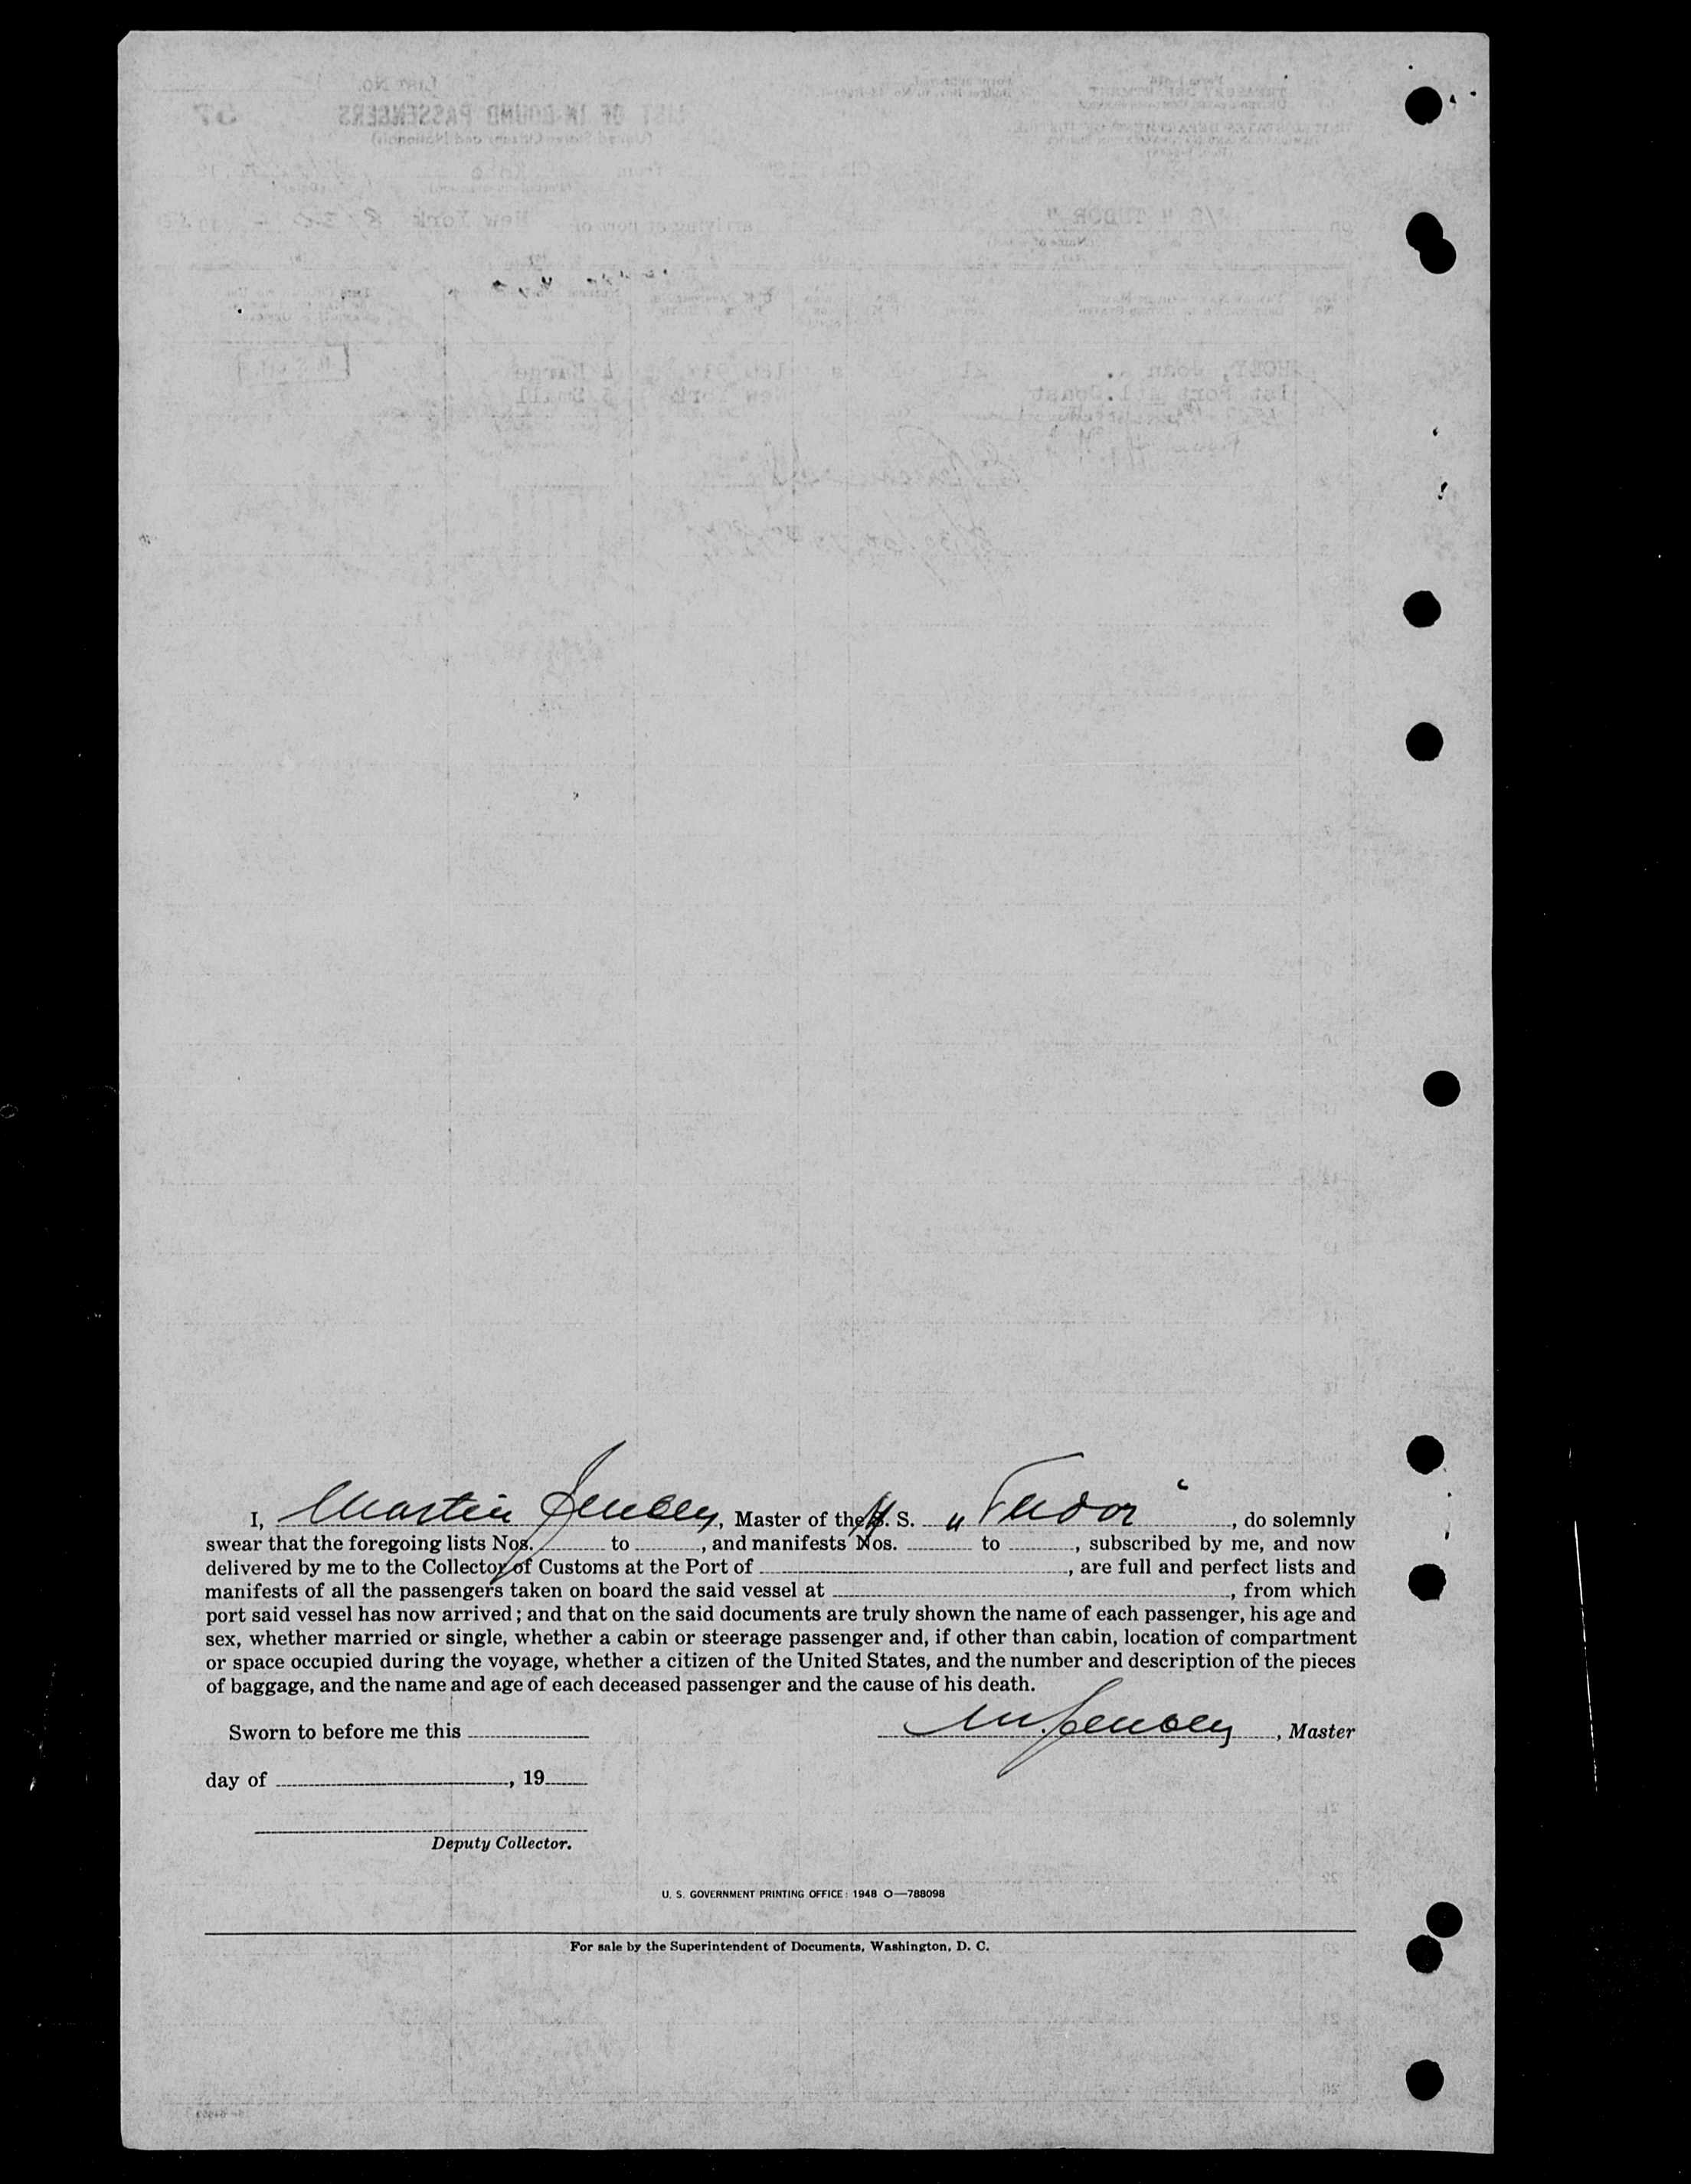 I, Martin Jensen, Master of the M. S. "Tudor", do solemnly
swear that the foregoing lists Nos. to , and manifests Nos. to , subscribed by me, and now
delivered by me to the Collector of Customs at the Port of , are full and perfect lists and
manifests of all the passengers taken on board the said vessel at , from which
port said vessel has now arrived; and that on the said documents are truly shown the name of each passenger, his age and
sex, whether married or single, whether a cabin or steerage passenger and, if other than cabin, location of compartment
or space occupied during the voyage, whether a citizen of the United States, and the number and description of the pieces
of baggage, and the name and age of each deceased passenger and the cause of his death.
Sworn to before me this
M. Jensen, Master
day of , 19
Deputy Collector.
U. S. GOVERNMENT PRINTING OFFICE: 1948 O—788098
For sale by the Superintendent of Documents, Washington, D. C.